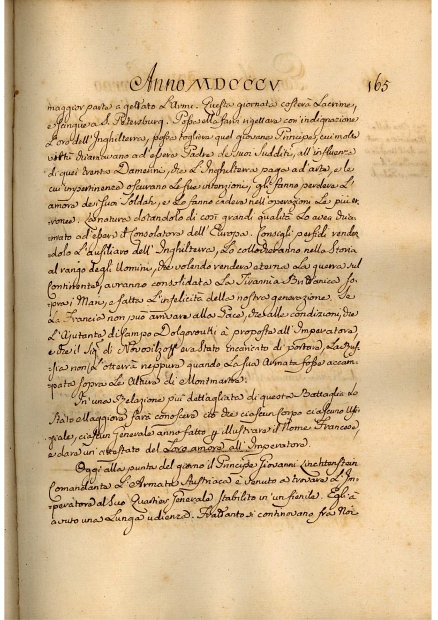 Anno MDCCCV 165
maggior parte à gettato l'Armi. Questa giornata costerà Lacrime,
e sangue a S. Petersburg. Possa ella farvi rigettare con indignazione
L'oro dell'Inghilterra, possa togliere quel giovane Principe, cui molte
virtù chiamavano ad essere Padre de suoi Sudditi, all'influenza
di quei trenta Damerini, che L'Inghilterra paga ad'arte, e le
cui impertinenze oscurano le sue intenzioni, gli fanno perdere l'
amore de' suoi Soldati, e lo fanno cadere nell'operazioni le più er-
ronee. La natura dotandolo di così grandi qualità lo avea chia-
mato ad'essere il Consolatore dell'Europa. Consigli perfidi renden-
dolo L'ausiliaro dell'Inghilterra, Lo collocheranno nella Storia
al rango degli Uomini, che volendo rendere eterna La guerra sul
Continente, avranno consolidata La Tirannia Britanica so-
pra i Mari, e fatto L'infelicità della nostra generazione. Se
La Francia non può arrivare alla Pace, che alle condizioni, che
L'Ajutante di Campo Dolgorouki à proposte all'Imperatore,
e che il Sig. di Novozilzoff era stato Encaricato di portare, La Rus-
sia non L'otterrà neppure quando La sua Armata fosse accam-
pata sopra Le Alture di Montmartre.
In'una Relazione più dettagliata di questa Battaglia lo
Stato Maggiore farà conoscere ciò che ciascun Corpo, ciascun Uffi-
ziale, ciascun Generale anno fatto p. illustrare il Nome Francese,
e dare un'attestato del Loro amore all'Imperatore.
Oggi alla punta del giorno il Principe Giovanni Lischtenstein
Comandante L'Armata Austriaca è venuto a trovare L'Im-
peratore al suo Quartier Generale stabilito in'un fienile. Egli à
avuto una Lunga udienza. Frattanto si continovano fra Noi